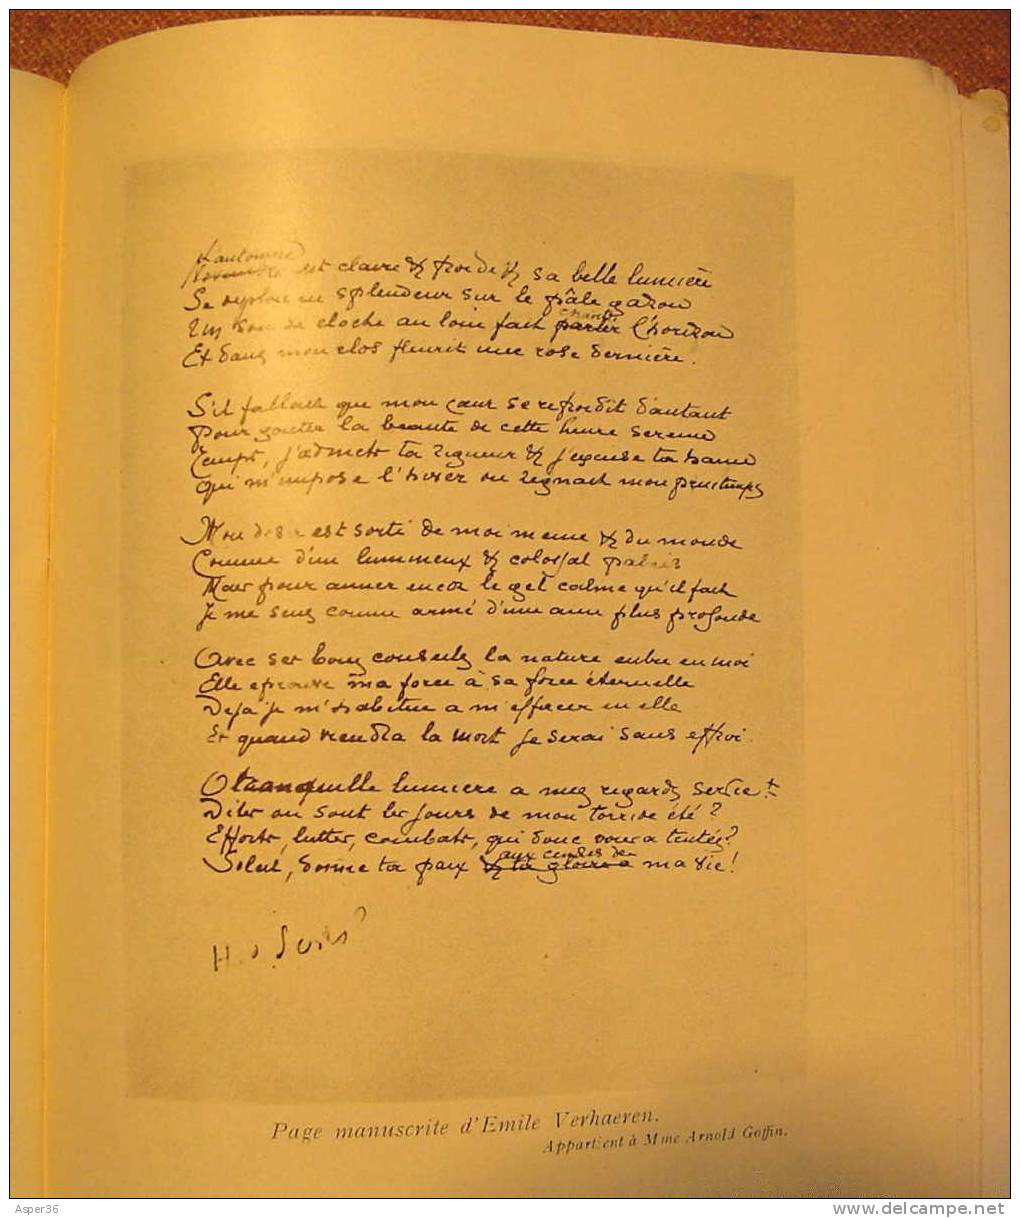 L'automne
Novembre est claire & froide & sa belle lumière
Se reploie en splendeur sur le pâle gazon
chanter
Un son de cloche au loin fait parler l'horizon
Et dans mon clos fleurit une rose dernière.
S'il fallait que mon cœur se refroidît d'autant
Pour gouter la beaute de cette heure sereine
Temps, j'admets ta rigueur & j'excuse ta haine
Qui m'impose l'hiver ou régnait mon printemps
Mon désir est sorti de moi meme & du monde
Comme d'un lumineux & colossal palais
Mais pour aimer encor le gel calme qu'il fait
Je me sens comme armé d'une ame plus profonde
Avec ses bons conseils la nature entre en moi
Elle eprouve ma force à sa force éternelle
Deja je m'habitue a m'effacer en elle
Et quand viendra la mort je serai sans effroi.
O tranquille lumiere a mes regards servie!
Dites ou sont les jours de mon torride été?
Efforts, luttes, combats, qui donc vous a tentés?
aux cendres de
Soleil, donne ta paix & ta gloire a ma vie!
H. d.
Page manuscrite d'Emile Verhaeren.
Appartient à Mme Arnold Goffin.
Asper36
www.delcampe.net